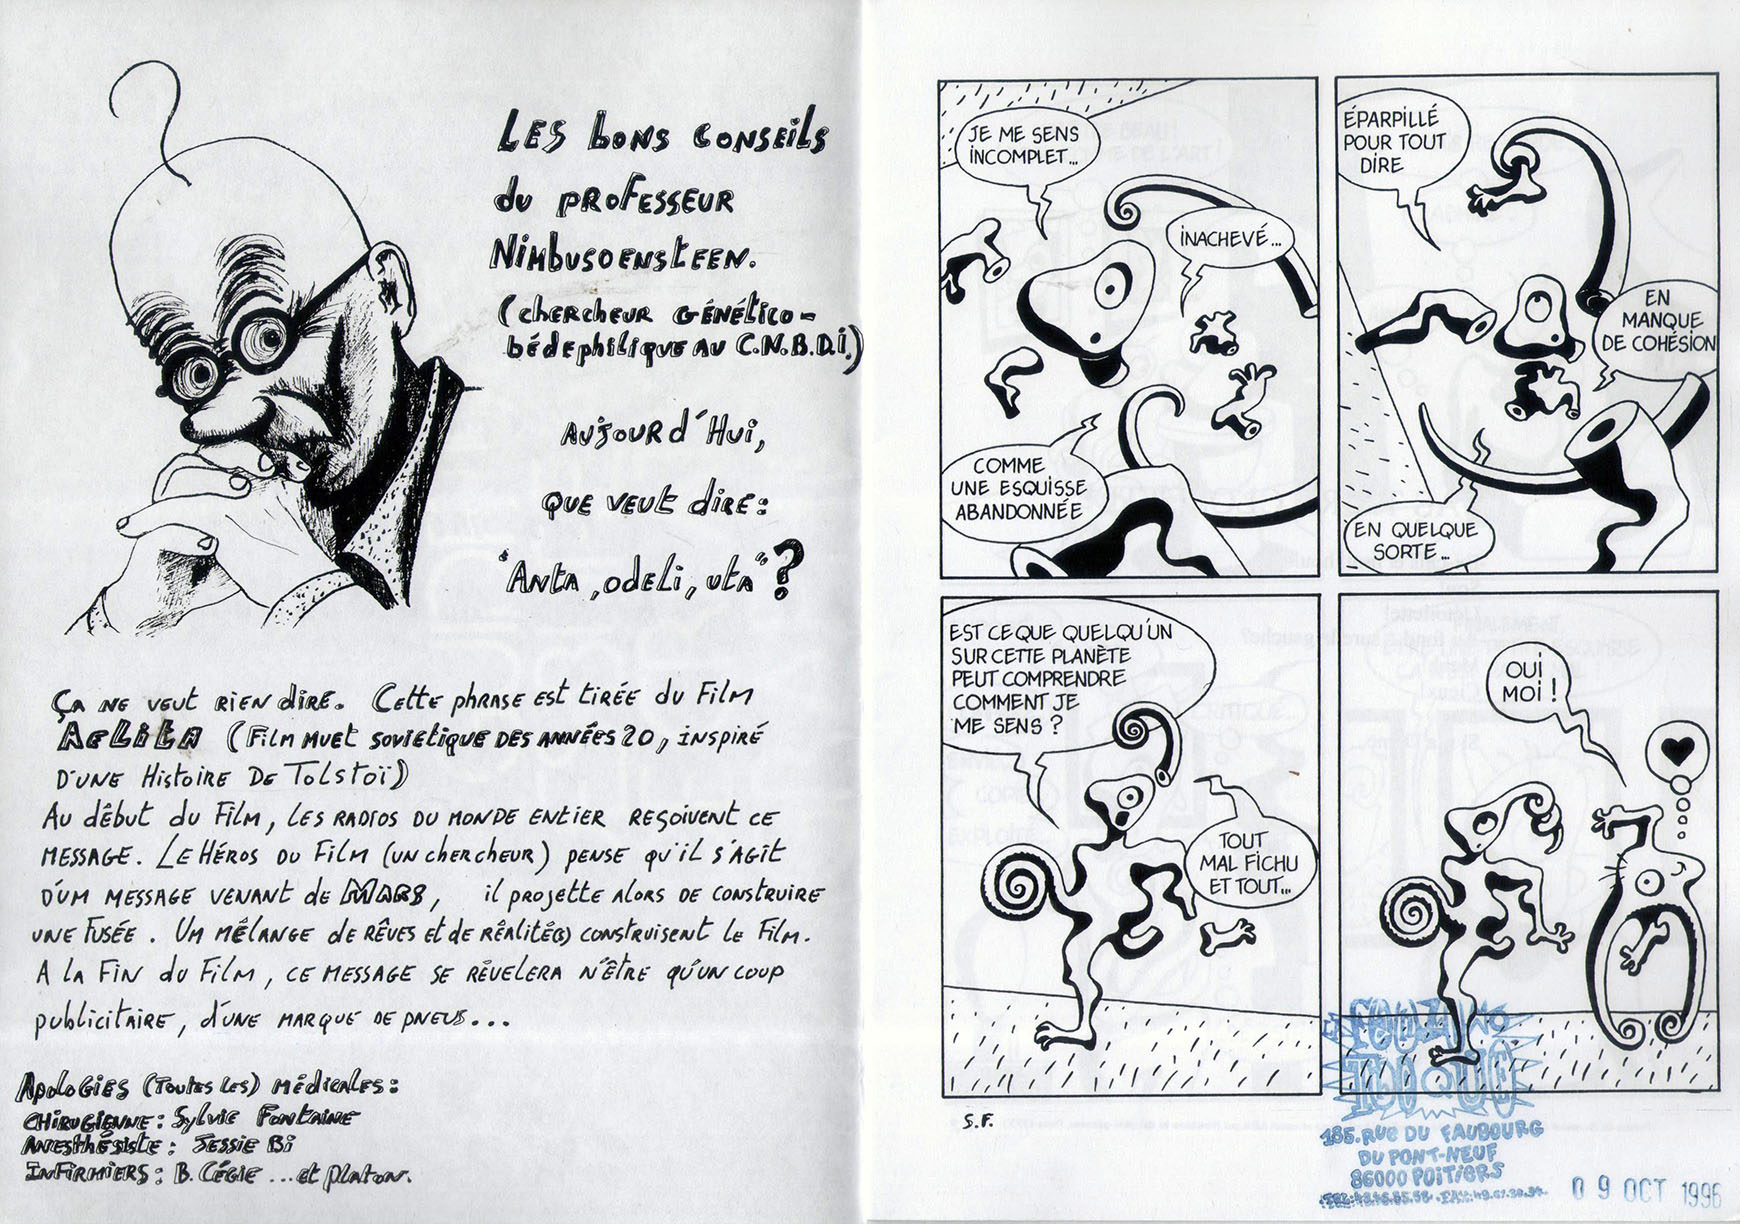 LES bons conseils
du professeur
Nimbusoensteen.
(chercheur génético-
bédephilique au C.N.B.D.I.)
Aujourd'hui,
que veut dire :
"Anta, odeli, uta" ?
Ça ne veut rien dire. Cette phrase est tirée du film
Aelita (film muet soviétique des années 20, inspiré
d'une histoire de Tolstoï)
Au début du film, les radios du monde entier reçoivent ce
message. Le héros du film (un chercheur) pense qu'il s'agit
d'um message venant de Mars, il projette alors de construire
une fusée. Um mélange de rêves et de réalité(s) construisent le film.
A la fin du film, ce message se révelera n'être qu'un coup
publicitaire, d'une marque de pneus...
Apologies (toutes les) médicales :
Chirugienne : Sylvie Fontaine
Anesthésiste : Jessie Bi
Infirmiers : B. Cégie ... et Platon.
JE ME SENS
INCOMPLET...
INACHEVÉ...
COMME
UNE ESQUISSE
ABANDONNÉE
ÉPARPILLÉ
POUR TOUT
DIRE
EN
MANQUE
DE COHÉSION
EN QUELQUE
SORTE...
EST CE QUE QUELQU'UN
SUR CETTE PLANÈTE
PEUT COMPRENDRE
COMMENT JE
ME SENS ?
TOUT
MAL FICHU
ET TOUT...
OUI
MOI !
S.F.
185. RUE DU FAUBOURG
DU PONT-NEUF
86000 POITIERS
09 OCT 1996